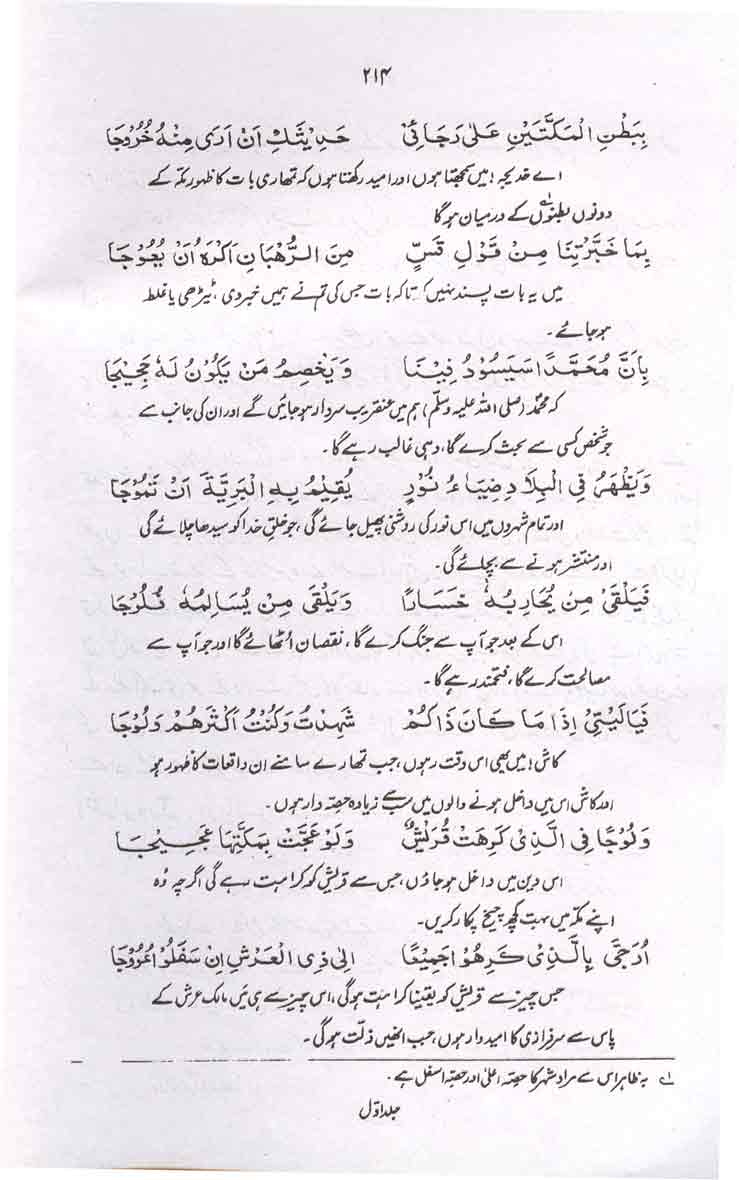 ۲۱۴
بِبَطْنِ الْمَكَّتَيْنِ عَلٰى رَجَائِيْ حَدِيْثَكِ اَنْ اَرٰى مِنْهُ خُرُوْجَا
اے خدیجہ! میں سمجھتا ہوں اور امید رکھتا ہوں کہ تمھاری بات کا ظہور مکہ کے
دونوں بطنوں لہ کے درمیان ہوگا
بِمَا خَبَّرْتِنَا مِنْ قَوْلِ قَسٍّ مِنَ الرُّهْبَانِ اَكْرَهُ اَنْ يَعُوْجَا
میں یہ بات پسند نہیں کرتا کہ بات جس کی تم نے ہمیں خبر دی، ٹیڑھی یا غلط
ہو جائے۔
بِاَنَّ مُحَمَّدًا سَيَسُوْدُ فِيْنَا وَيَخْصِمُ مَنْ يَكُوْنُ لَهٗ حَجِيْجَا
کہ محمدؐ (صلی اللہ علیہ وسلم) ہم میں عنقریب سردار ہو جائیں گے اور ان کی جانب سے
جو شخص کسی سے بحث کرے گا، وہی غالب رہے گا۔
وَيَظْهَرُ فِي الْبِلَادِ ضِيَاءُ نُوْرٍ يُقِيْمُ بِهِ الْبَرِيَّةَ اَنْ تَمُوْجَا
اور تمام شہروں میں اس نور کی روشنی پھیل جائے گی، جو خلقِ خدا کو سیدھا چلائے گی
اور منتشر ہونے سے بچائے گی۔
فَيَلْقٰى مَنْ يُحَارِبُهٗ خَسَارًا وَيَلْقٰى مَنْ يُسَالِمُهٗ فُلُوْجَا
اس کے بعد جو آپ سے جنگ کرے گا، نقصان اُٹھائے گا اور جو آپ سے
مصالحت کرے گا، فتحمند رہے گا۔
فَيَالَيْتِيْ اِذَا مَا كَانَ ذَاكُمْ شَهِدْتُ وَكُنْتُ اَكْثَرَهُمْ وَلُوْجَا
کاش! میں بھی اس وقت رہوں، جب تمھارے سامنے ان واقعات کا ظہور ہو
اور کاش اس میں داخل ہونے والوں میں سب سے زیادہ حصہ دار ہوں۔
وَلُوْجًا فِي الَّذِيْ كَرِهَتْ قُرَيْشٌ وَلَوْ عَجَّتْ بِمَكَّتِهَا عَجِيْجَا
اس دین میں داخل ہو جاؤں، جس سے قریش کو کراہت رہے گی اگرچہ وُہ
اپنے مکہ میں بہت کچھ چیخ پکار کریں۔
اُرَجِّيْ بِالَّذِيْ كَرِهُوْا جَمِيْعًا اِلٰى ذِي الْعَرْشِ اِنْ سَفَلُوْا عُرُوْجَا
جس چیز سے قریش کو یقیناً کراہت ہوگی، اس چیز سے ہی میں مالک عرش کے
پاس سے سرفرازی کا امیدوار ہوں، جب انھیں ذلت ہوگی۔
لہ بہ ظاہر اس سے مراد شہر کا حصۂ اعلیٰ اور حصۂ اسفل ہے۔
جلد اوّل